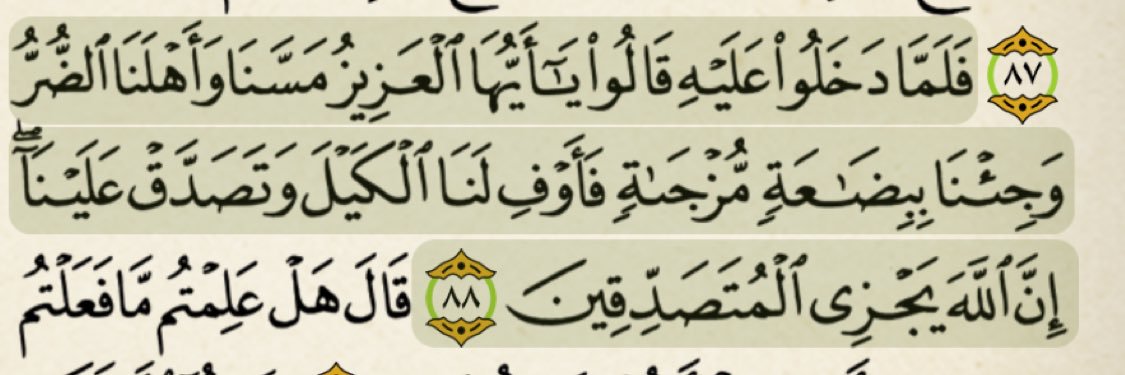 ٨٧ فَلَمَّا دَخَلُوا۟ عَلَيْهِ قَالُوا۟ يَـٰٓأَيُّهَا ٱلْعَزِيزُ مَسَّنَا وَأَهْلَنَا ٱلضُّرُّ
وَجِئْنَا بِبِضَـٰعَةٍ مُّزْجَىٰةٍ فَأَوْفِ لَنَا ٱلْكَيْلَ وَتَصَدَّقْ عَلَيْنَآ ۖ
إِنَّ ٱللَّهَ يَجْزِى ٱلْمُتَصَدِّقِينَ ٨٨ قَالَ هَلْ عَلِمْتُم مَّا فَعَلْتُم